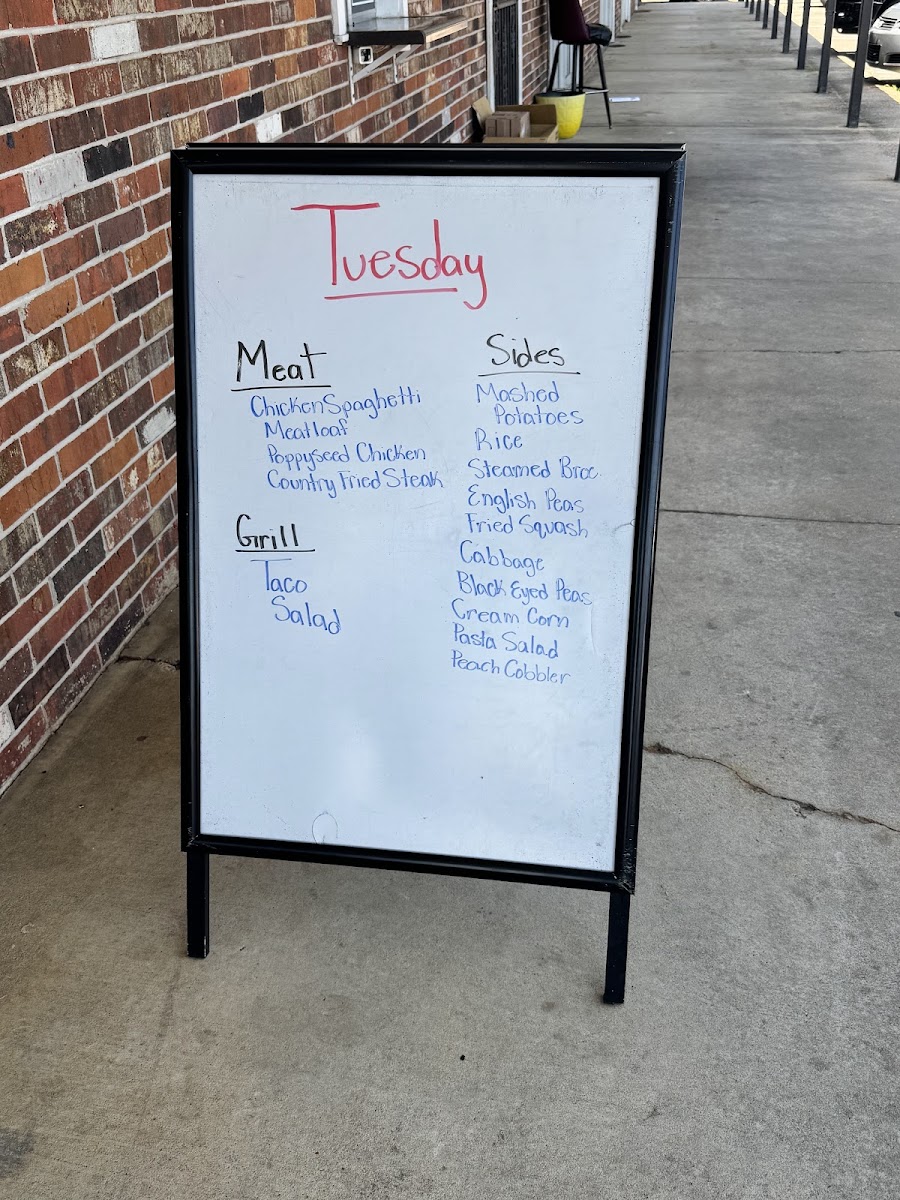 Tuesday
Meat
Chicken Spaghetti
Meatloaf
Poppyseed Chicken
Country Fried Steak
Grill
Taco
Salad
Sides
Mashed
Potatoes
Rice
Steamed Broc.
English Peas
Fried Squash
Cabbage
Black Eyed Peas
Cream Corn
Pasta Salad
Peach Cobbler